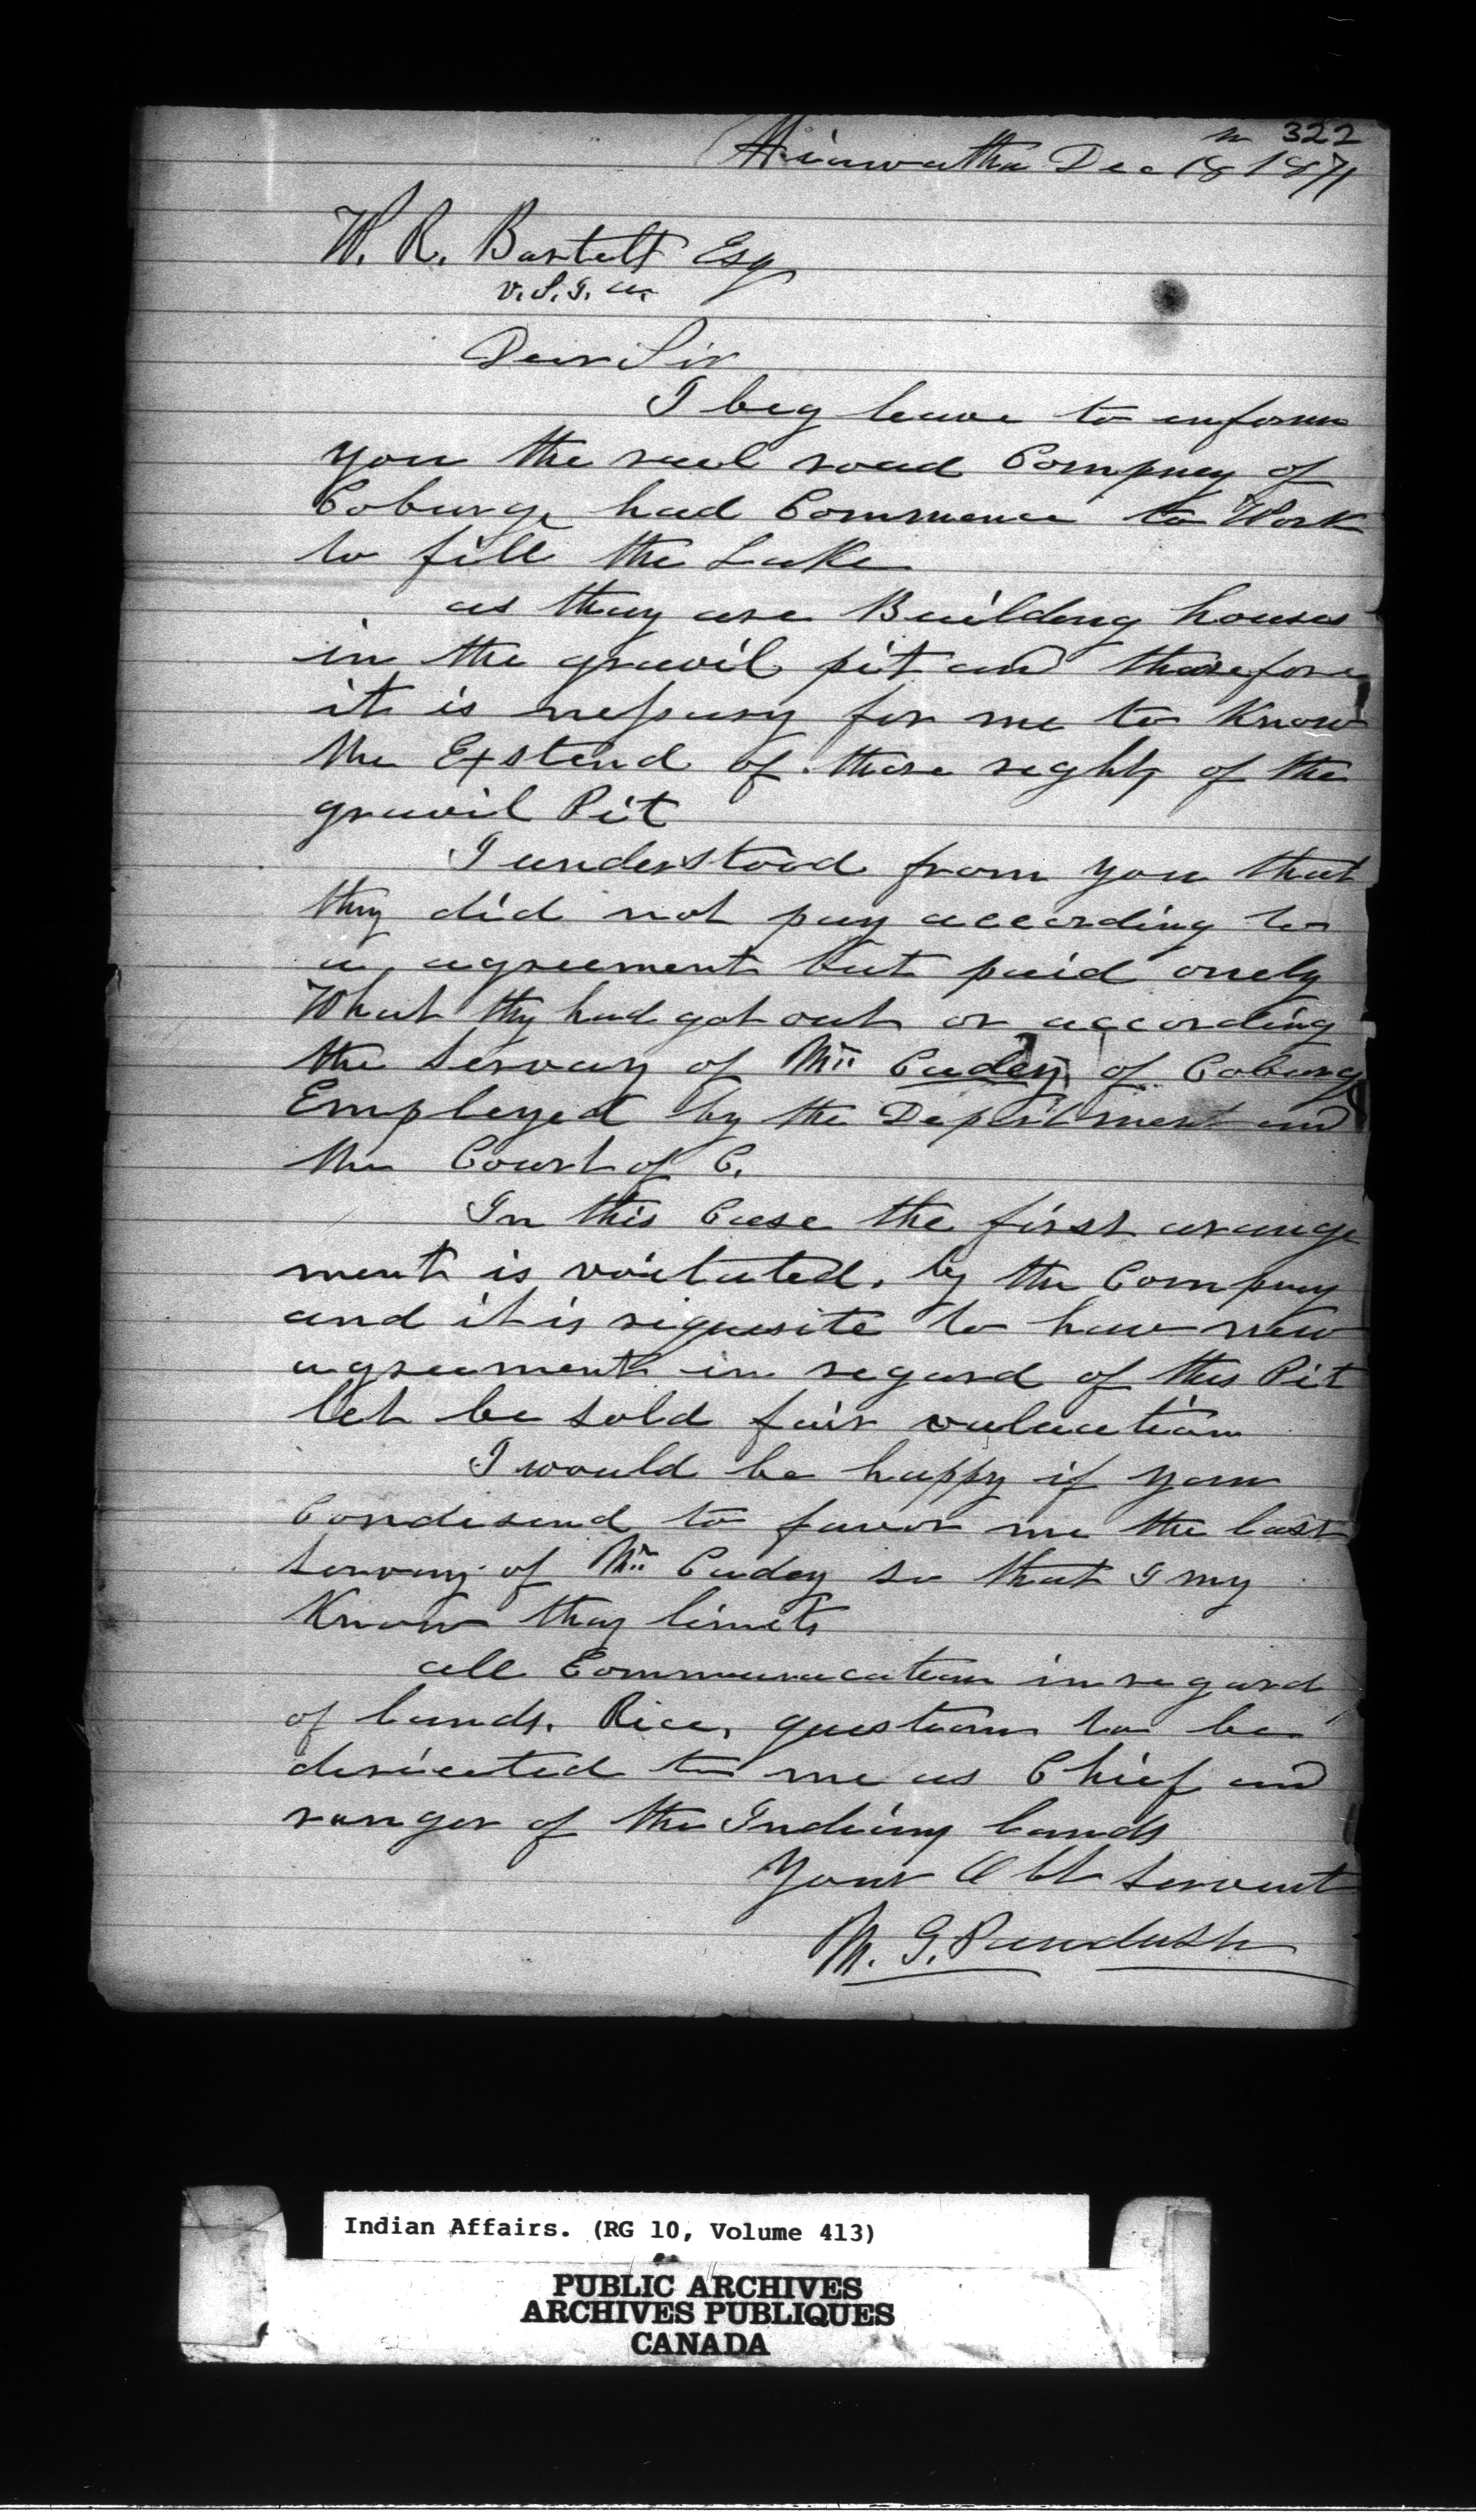 322
Hiawatha Dec 18 1871
W. R. Bartlett Esq
V. S. I. a.
Dear Sir
I beg leave to inform
you the rail road Compney of
Coburge had Commence to Work
to fill the Lake
as thay are Building houses
in the gravil pit and therefore
it is nessary for me to Know
the Extend of thare reghts of the
gravil Pit
I understood from you that
thay did not pay according to
a agreement but paid onely
What thy had got out or according
the Servay of Mr Cadey of Coburg
Employed by the Depertment and
the Court of C.
In this Case the first arange
ment is voitated, by the Compney
and it is riquesite to have new
agreement in regard of this Pit
let be sold fair valuation
I would be happy if you
Condesend to favor me the last
Servay of Mr Cadey so that I my
Know thay limits
all Communacation in regard
of lands, Rice, question to be
deriected to me as Chief and
ranger of the Indiang lands
Your Obt Servent
M. G. Paudash
Indian Affairs. (RG 10, Volume 413)
PUBLIC ARCHIVES
ARCHIVES PUBLIQUES
CANADA